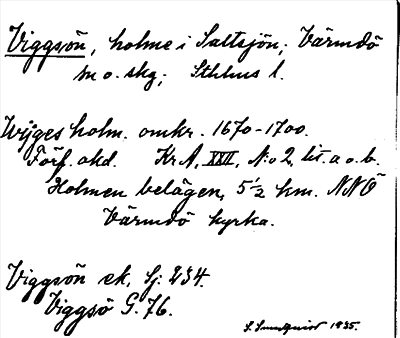 Viggsön, holme i Saltsjön; Värmdö
m o. skg; Sthlms l.
Wijges holm. omkr. 1670-1700.
Förf. okd. Kr A, XXII, N:o 2, lit. a o. b.
Holmen belägen, 5 1/2 km. NNÖ
Värmdö kyrka.
Viggsön ek, bj. 234.
Viggsö G. 76.
S. Sundqvist 1935.